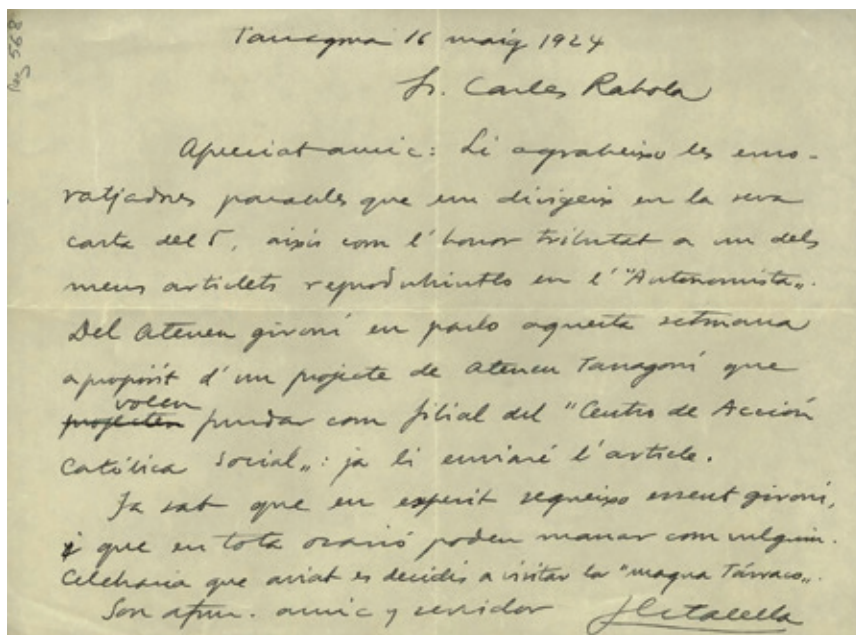 Reg 568
Tarragona 16 maig 1924
Sr. Carles Rahola
Apreciat amic: Li agraheixo les enco-
ratjadores paraules que em dirigeix en la seva
carta del 5, aixís com l'honor tributat a un dels
meus articlets reproduhintlo en l'"Autonomista".
Del Ateneu gironí en parlo aquesta setmana
apropòsit d'un projecte de Ateneu Tarragoní que
volen
projecten fundar com filial del "Centro de Acción
Católica Social": ja li enviaré l'article.
Ja sab que en esperit segueixo essent gironí,
i que en tota ocasió poden manar com vulguin.
Celebraria que aviat es decidís a visitar la "magna Tárraco".
Son afm. amic y servidor